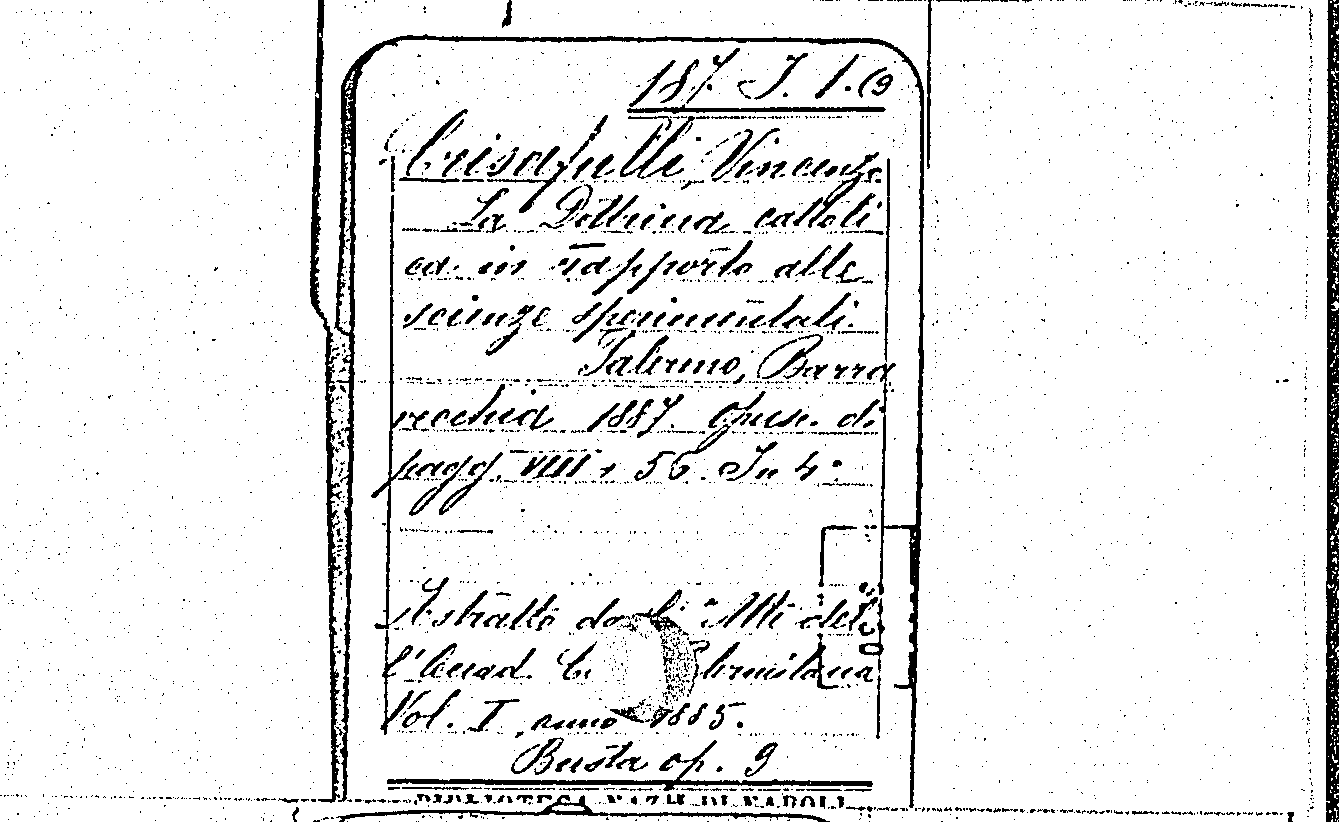 187. J. 1. (9
Crisafulli, Vincenzo
La Dottrina cattoli
ca in rapporto alle
scienze sperimentali.
Palermo, Barra
vecchia 1887. Opusc. di
pagg. VIII, 56. In 4°
Estratto dagli "Atti del
l'Accad. C. Palermitana
Vol. I anno 1885.
Busta op. 9
BIBLIOTECA NAZ. DI NAPOLI